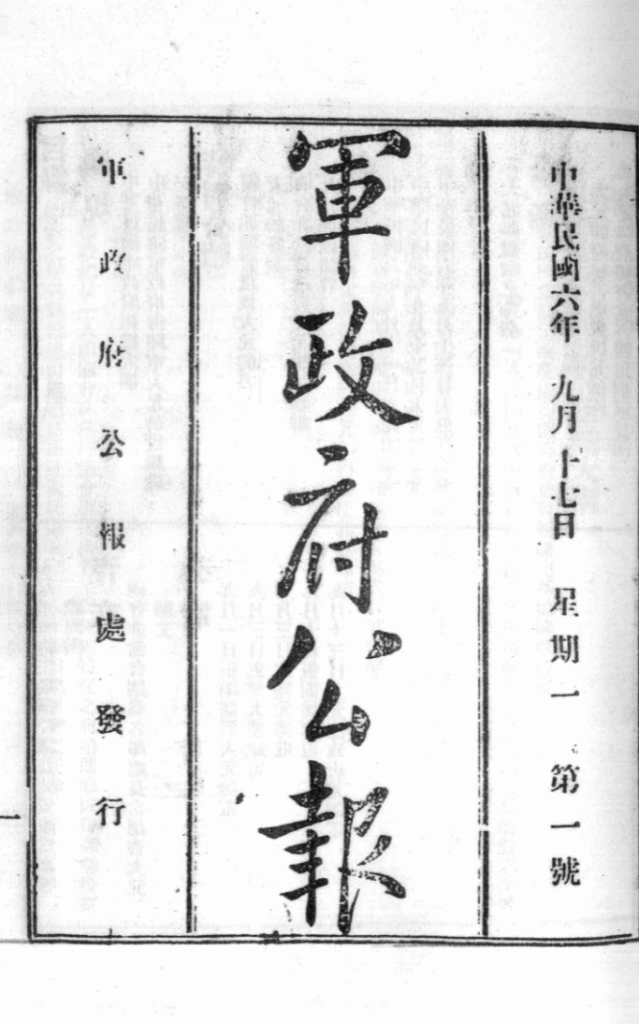 中華民國六年 九月十七日 星期一 第一號
軍政府公報
軍政府公報處發行